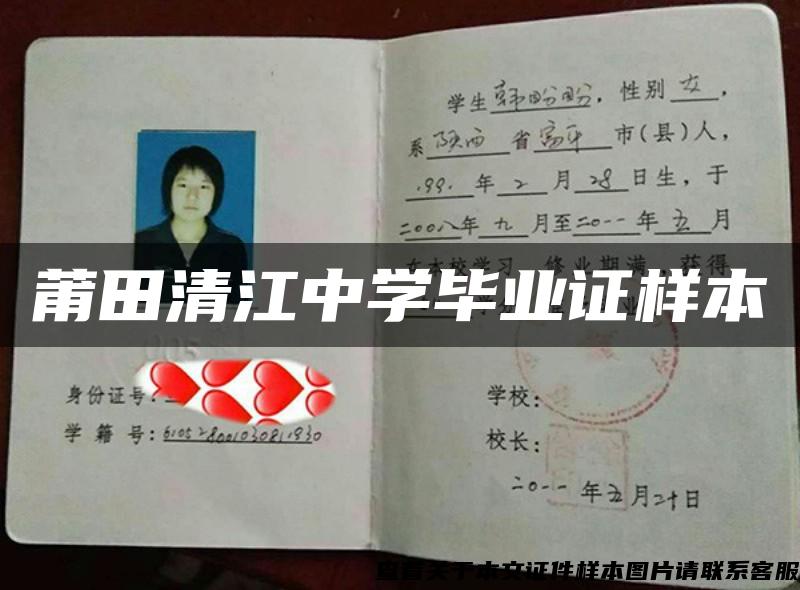 学生韩盼盼，性别女，
系陕西省富平市(县)人，
1991年2月28日生，于
二00八年九月至二0一一年五月
在本校学习，修业期满，获得
莆田清江中学毕业证样本
身份证号：
学籍号：610528001030811930
学校：
校长：
二0一一年五月二十日
查看关于本文证件样本图片请联系客服